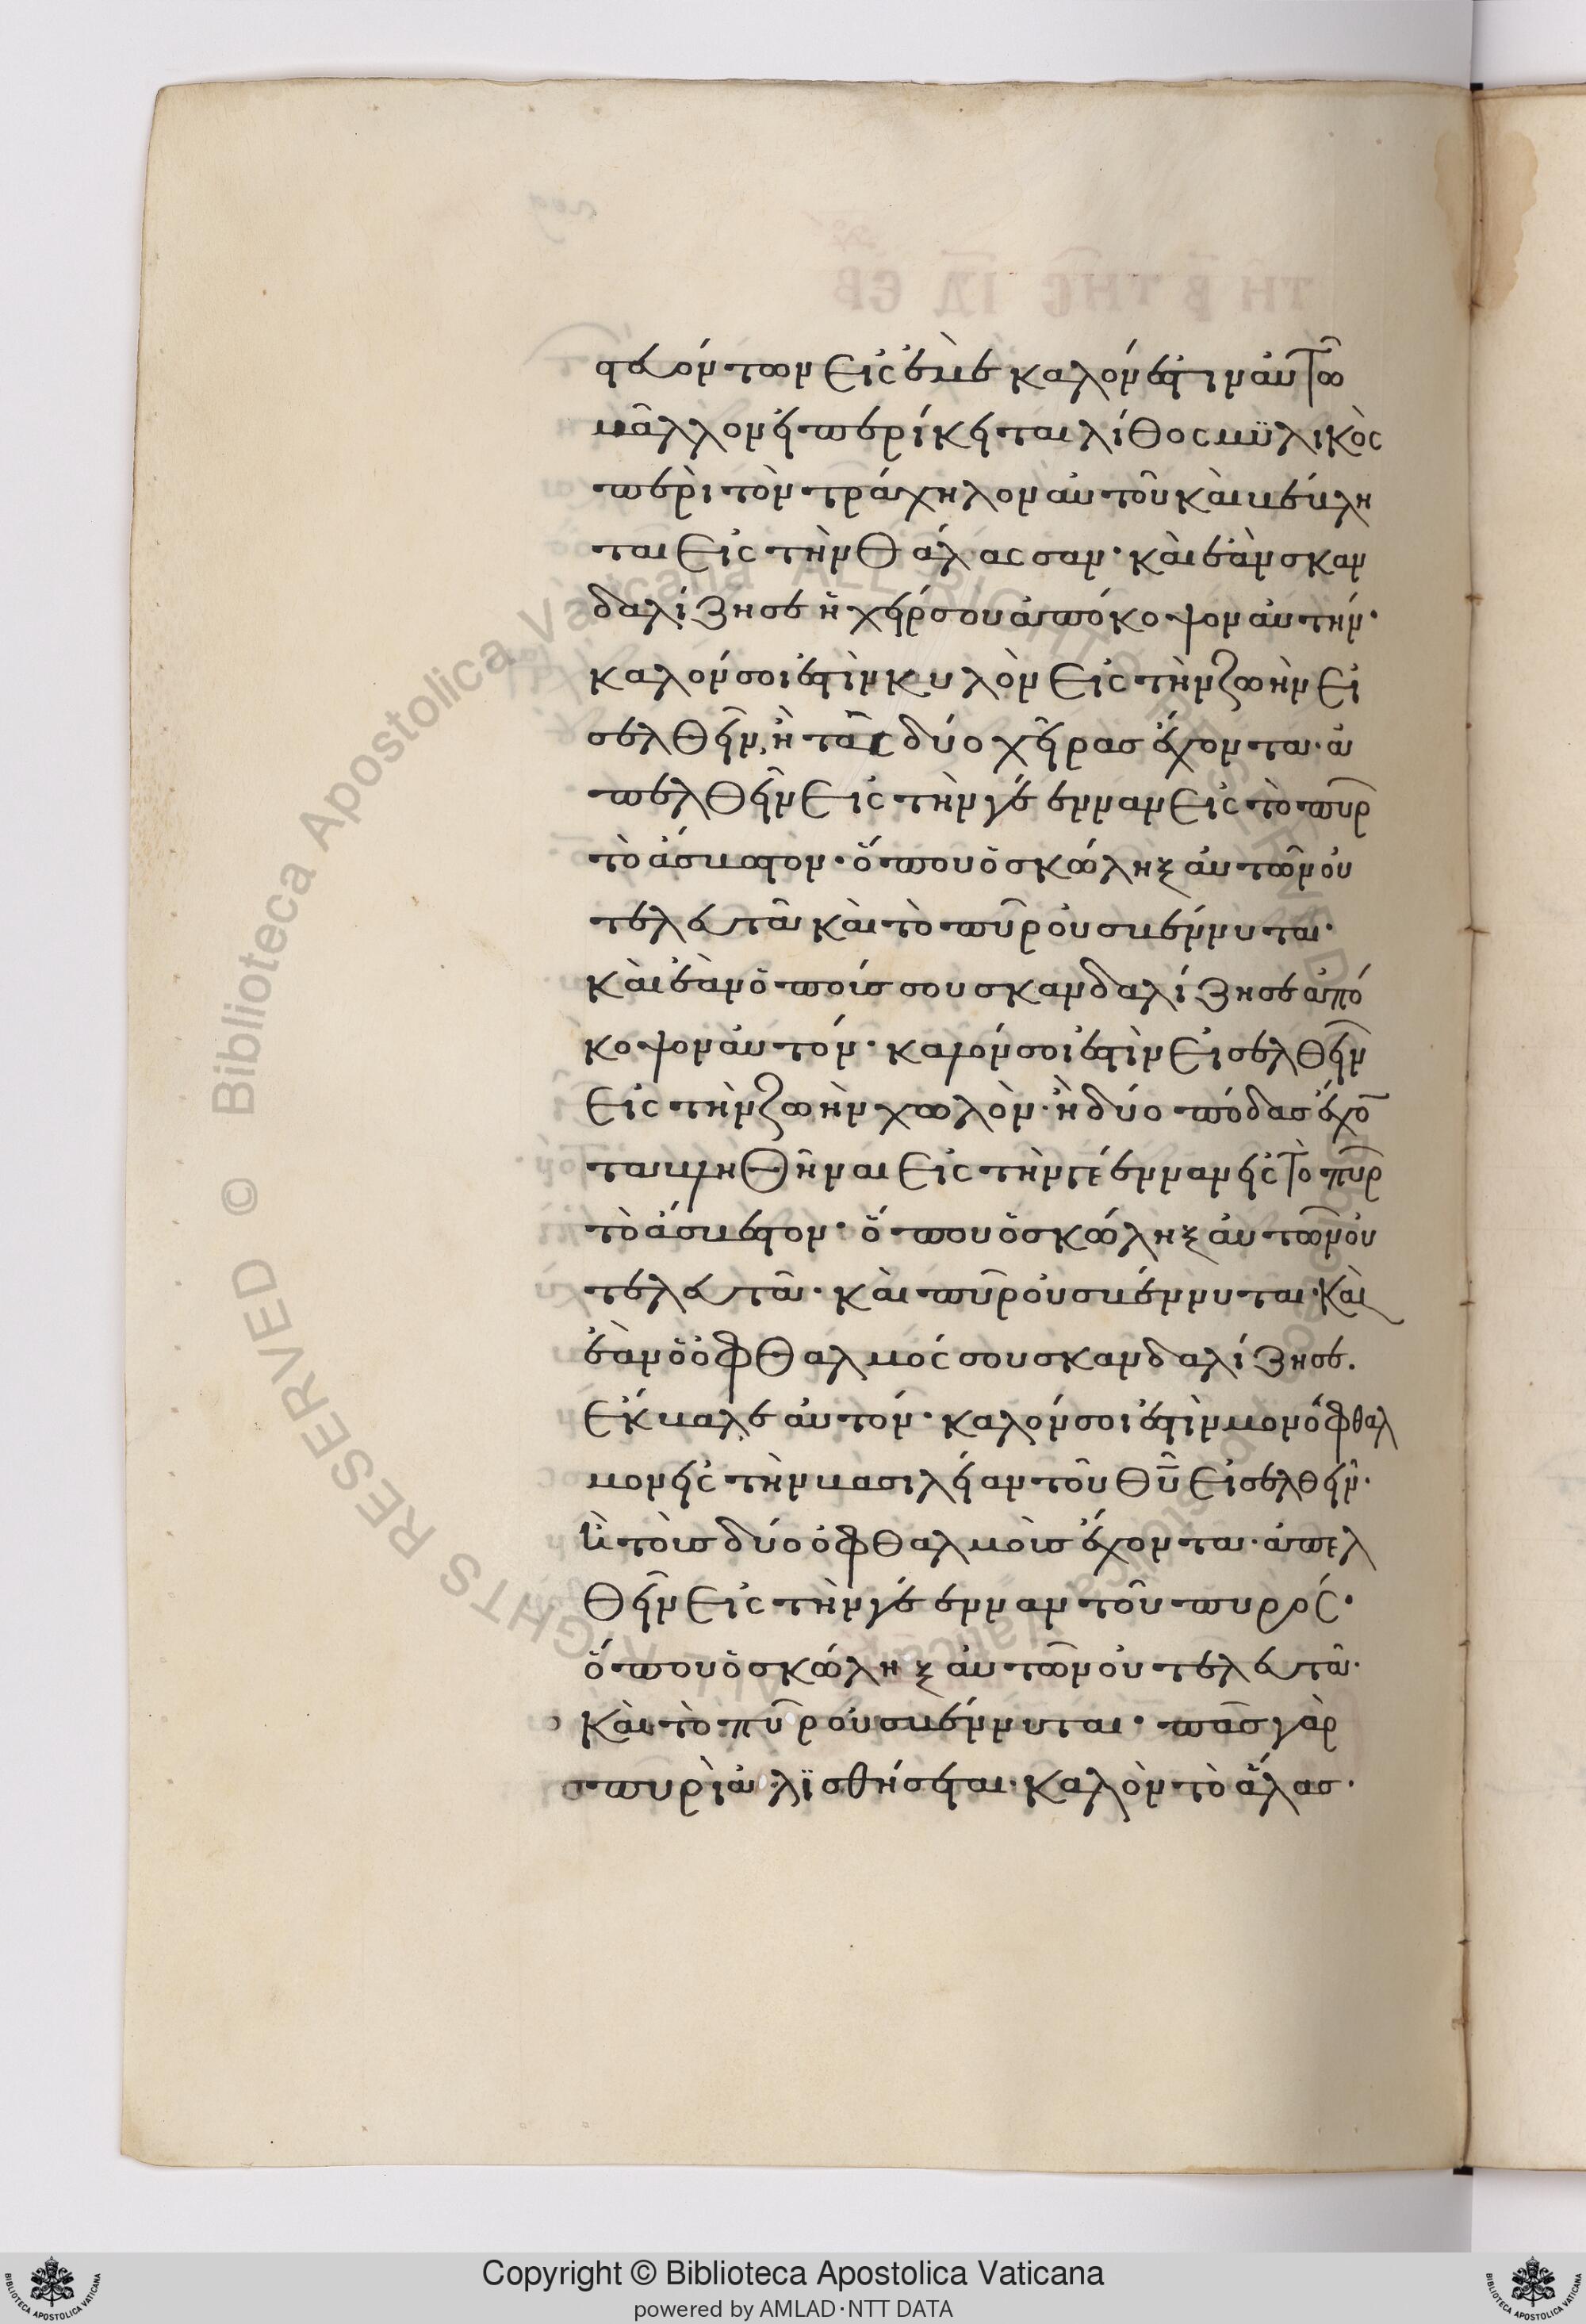 στευόντων εἰς ἐμὲ καλόν ἐστιν αὐτῶ
μᾶλλον εἰ περίκειται λίθος μϋλικὸς
περὶ τὸν τράχηλον αὐτοῦ καὶ βέβλη
ται εἰς τὴν θάλασσαν· καὶ ἐὰν σκαν
δαλίζησε ἡ χείρ σου ἀπόκοψον αὐτήν·
καλόν σοι ἐστὶν κυλὸν εἰς τὴν ζωὴν εἰ
σελθεῖν, ἢ τὰς δύο χεῖρας ἔχοντα· ἀ
πελθεῖν εἰς τὴν γέεννναν εἰς τὸ πῦρ
τὸ ἄσβεστον· ὅπου ὁ σκώληξ αὐτῶν οὐ
τελευτᾶ καὶ τὸ πῦρ οὐ σβέννυται·
καὶ ἐὰν ὁ ποῦς σου σκανδαλίζησε ἀπό
κοψον αὐτόν· καλόν σοι ἐστὶν εἰσελθεῖν
εἰς τὴν ζωὴν χωλὸν· ἢ δύο πόδας ἔχο
τα βληθῆναι εἰς τὴν γέενναν εἰς τὸ πῦρ
τὸ ἄσβεστον· ὅπου ὁ σκώληξ αὐτῶν οὐ
τελευτᾶ· καὶ πῦρ οὐ σβέννυται· καὶ
ἐὰν ὁ ὀφθαλμός σου σκανδαλίζησε.
ἔκβαλε αὐτόν· καλόν σοι ἐστὶν μονόφθαλ
μον εἰς τὴν βασιλείαν τοῦ θυ εἰσελθεῖν·
ἢ τοὺς δύο ὀφθαλμοὺς ἔχοντα· ἀπελ
θεῖν εἰς τὴν γέενναν τοῦ πυρός·
ὅπου ὁ σκώληξ αὐτῶν οὐ τελευτᾶ·
καὶ τὸ πῦρ οὐ σβέννυται· πᾶς γὰρ
πυρὶ ἁλϊσθήσεται· καλὸν τὸ ἅλας·
Copyright © Biblioteca Apostolica Vaticana
powered by AMLAD·NTT DATA